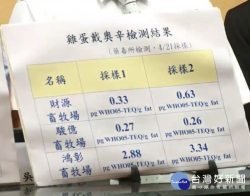 雞蛋戴奧辛檢測結果
(藥毒所檢測,4/21採樣)
名稱 採樣1 採樣2
財源 0.33 0.63
畜牧場 pg WHO05-TEQ/g fat pg WHO05-TEQ/g fat
駿億 0.27 0.26
畜牧場 pg WHO05-TEQ/g fat pg WHO05-TEQ/g fat
鴻彰 2.88 3.34
畜牧場 pg WHO05-TEQ/g fat pg WHO05-TEQ/g fat
台灣好新聞